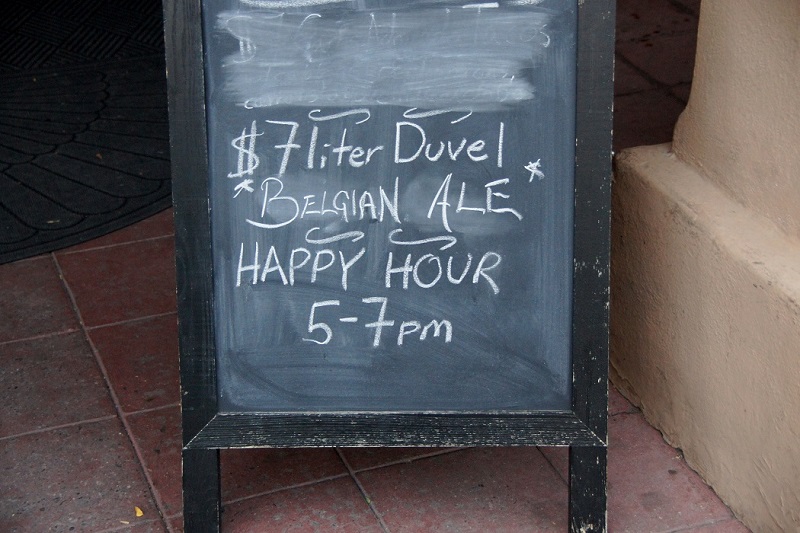 $7 liter Duvel
*BELGIAN ALE*
HAPPY HOUR
5-7pm